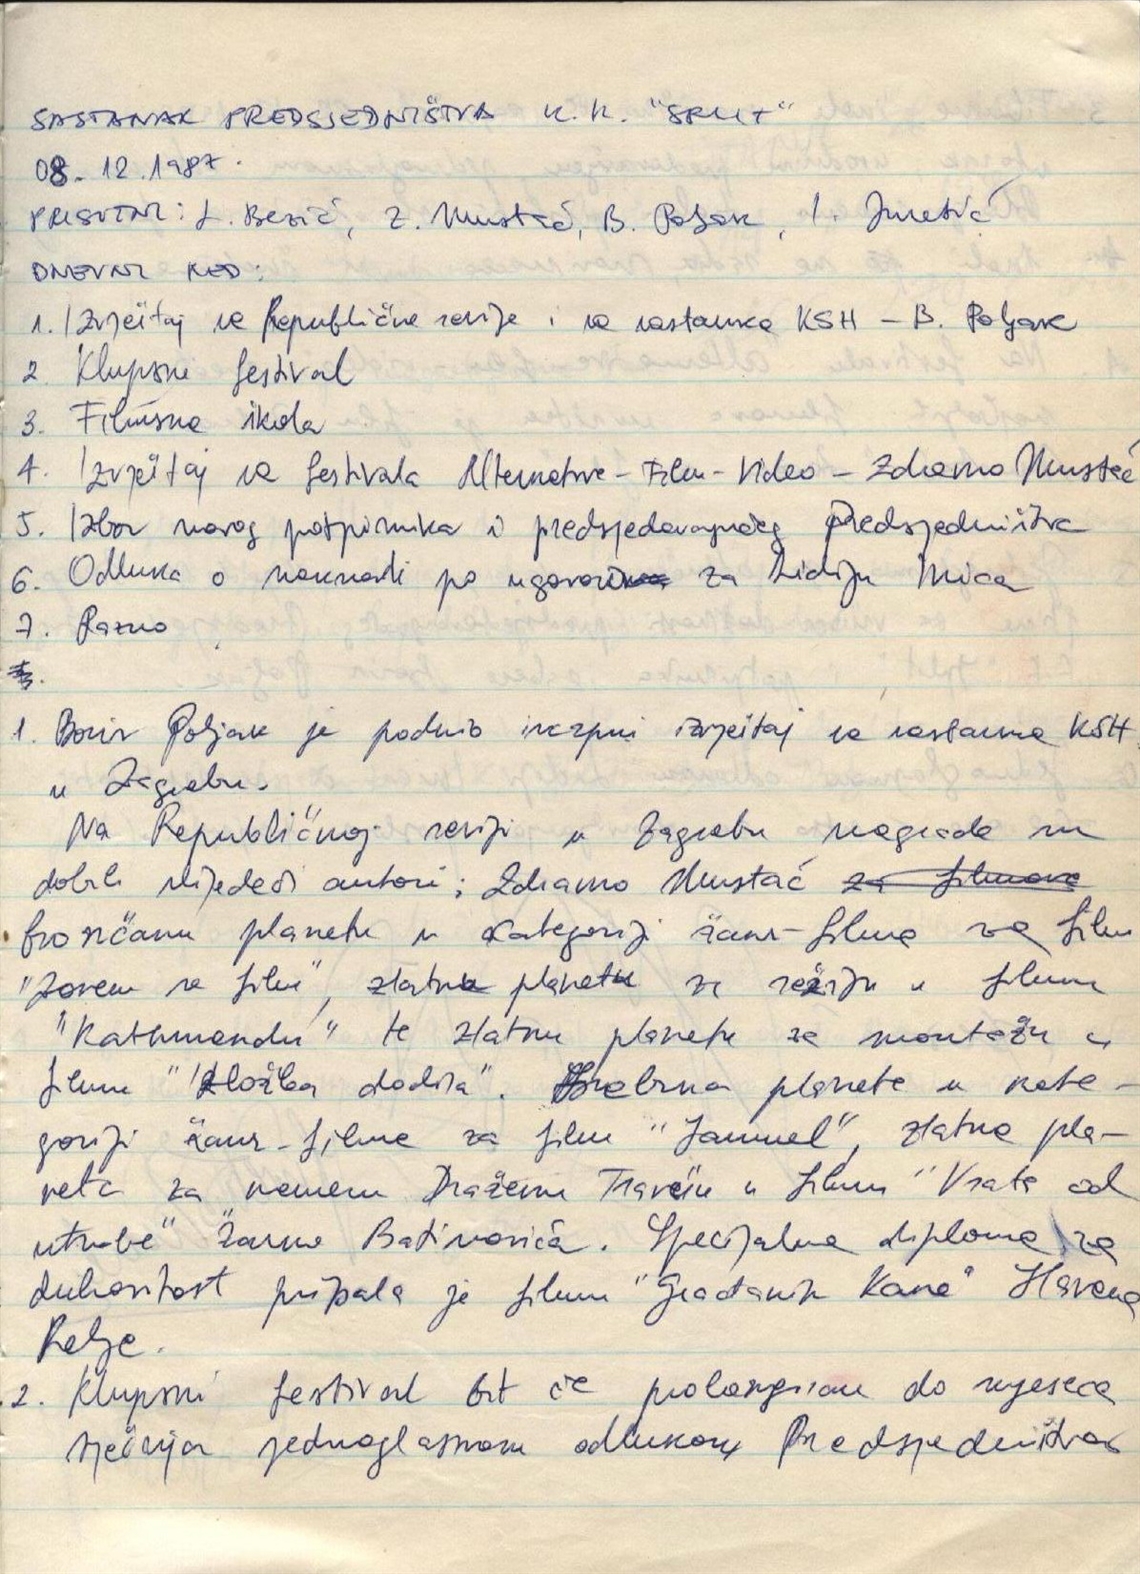 SASTANAK PREDSJEDNIŠTVA K.K. "SPLIT"
08. 12. 1987.
PRISUTNI: L. Bezić, Z. Mustać, B. Poljak, I. Juretić
DNEVNI RED:
1. Izvještaj sa Republične revije i sa sastanka KSH – B. Poljak
2. Klupski festival
3. Filmska škola
4. Izvještaj sa festivala Alternative-Film-Video – Zdravko Mustać
5. Izbor novog potpisnika i predsjedavajućeg Predsjedništva
6. Odluka o naknadi po ugovoru za Lidiju
7. Razno
1. Boris Poljak je podnio iscrpni izvještaj sa sastanka KSH
u Zagrebu.
Na Republičnoj reviji u Zagrebu nagrade su
dobili slijedeći autori: Zdravko Mustać za filmove
brončanu planetu u kategoriji žanr-filma za film
"Zovem se film", zlatnu planetu za režiju u filmu
"Kathmandu" te zlatnu planetu za montažu u
filmu "Izložba dodira". Srebrna planeta u kate-
goriji žanr-filma za film "Jammel", zlatna pla-
neta za kameru Draženu u filmu "Vrata od
utrobe" Žarka Batinovića. Specijalna diploma za
duhovitost pripala je filmu "Građanin Kane" Hrvoja
Relje.
2. Klupski festival bit će prolongiran do mjeseca
siječnja jednoglasnom odlukom Predsjedništva